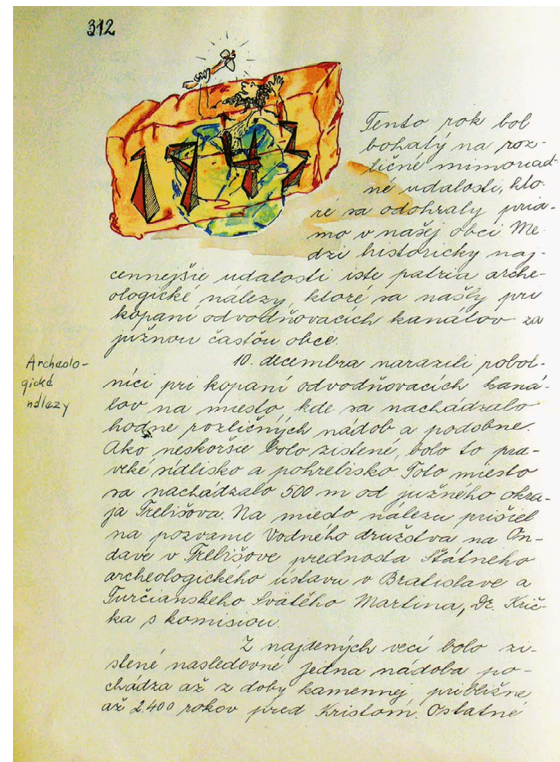 312
Tento rok bol
bohatý na roz-
ličné mimoriad-
né udalosti, kto-
ré sa odohraly pria-
mo v našej obci Me-
dzi historicky naj-
cennejšie udalosti iste patria arche-
ologické nálezy, ktoré sa našly pri
kopaní odvodňovacích kanálov za
južnou časťou obce.
Archeolo-
gické
nálezy
10. decembra narazili robot-
níci pri kopaní odvodňovacích kaná-
lov na miesto, kde sa nachádzalo
hodne rozličných nádob a podobne.
Ako neskoršie bolo zistené, bolo to pra-
veké sídlisko a pohrebisko Toto miesto
sa nachádzalo 500 m od južného okra-
ja Trebišova. Na miesto nálezu prišiel
na pozvanie Vodného družstva na On-
dave v Trebišove prednosta Štátneho
archeologického ústavu v Bratislave a
Turčianskeho Svätého Martina, Dr. Krič-
ka s komisiou.
Z najdených vecí bolo zi-
stené nasledovné jedna nádoba po-
chádza až z doby kamennej približne
až 2.400 rokov pred Kristom. Ostatné